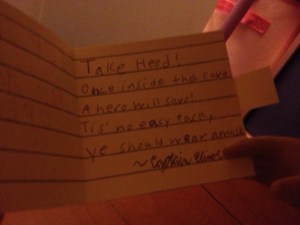 Take Heed!
Once inside the cave
A hero will save!
Tis' no easy task,
ye should wear
~Captain